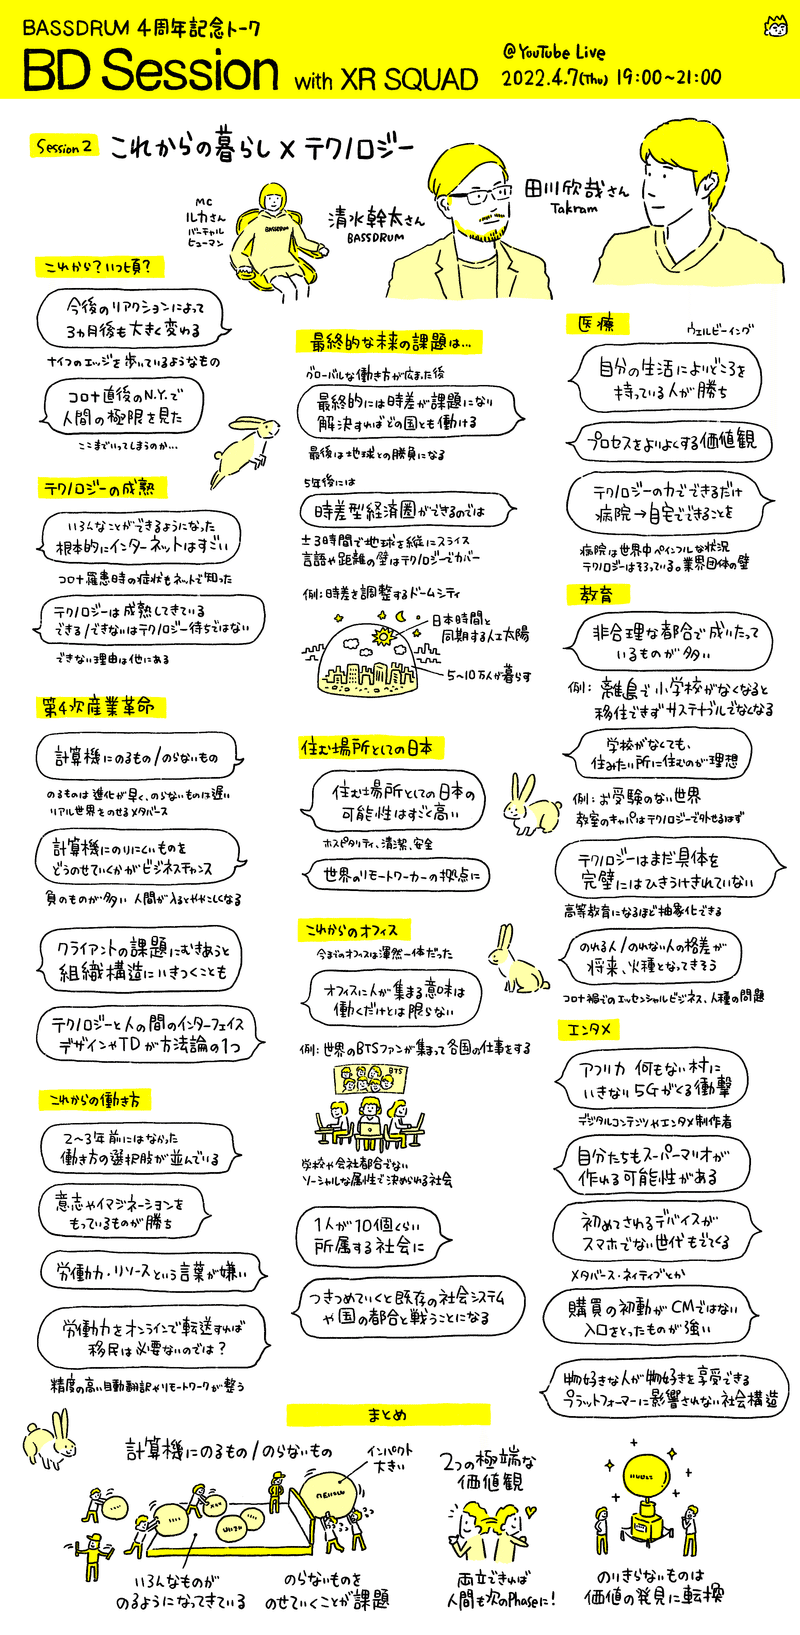 BASSDRUM 4周年記念トーク
BD Session with XR SQUAD
@YouTube Live
2022.4.7(Thu) 19:00~21:00
Session 2 これからの暮らし×テクノロジー
MC
ルカさん
バーチャル
ヒューマン
BASSDRUM
清水幹太さん
BASSDRUM
田川欣哉さん
Takram
これから?いつ頃?
今後のリアクションによって
3ヵ月後も大きく変わる
ナイフのエッジを歩いているようなもの
コロナ直後のN.Y.で
人間の極限を見た
ここまでいってしまうのか…
テクノロジーの成熟
いろんなことができるようになった
根本的にインターネットはすごい
コロナ罹患時の症状もネットで知った
テクノロジーは成熟してきている
できる/できないはテクノロジー待ちではない
できない理由は他にある
第4次産業革命
計算機にのるもの/のらないもの
のるものは進化が早く、のらないものは遅い
リアル世界をのせるメタバース
計算機にのりにくいものを
どうのせていくかがビジネスチャンス
負のものが多い 人間が入るとややこしくなる
クライアントの課題にむきあうと
組織構造にいきつくことも
テクノロジーと人の間のインターフェイス
デザインやTDが方法論の1つ
これからの働き方
2~3年前にはなかった
働き方の選択肢が並んでいる
意志やイマジネーションを
もっているものが勝ち
労働力・リソースという言葉が嫌い
労働力をオンラインで転送すれば
移民は必要ないのでは?
精度の高い自動翻訳やリモートワークが整う
最終的な未来の課題は…
グローバルな働き方が広まった後
最終的には時差が課題になり
解決すればどの国とも働ける
最後は地球との勝負になる
5年後には
時差型経済圏ができるのでは
±3時間で地球を縦にスライス
言語や距離の壁はテクノロジーでカバー
例:時差を調整するドームシティ
日本時間と
同期する人工太陽
5~10万人が暮らす
住む場所としての日本
住む場所としての日本の
可能性はすごく高い
ホスピタリティ、清潔、安全
世界のリモートワーカーの拠点に
これからのオフィス
今までのオフィスは渾然一体だった
オフィスに人が集まる意味は
働くだけとは限らない
例:世界のBTSファンが集まって各国の仕事をする
BTS
学校や会社都合でない
ソーシャルな属性で決められる社会
1人が10個くらい
所属する社会に
つきつめていくと既存の社会システム
や国の都合と戦うことになる
医療
ウェルビーイング
自分の生活によりどころを
持っている人が勝ち
プロセスをよりよくする価値観
テクノロジーの力でできるだけ
病院→自宅でできることを
病院は世界中ペインフルな状況
テクノロジーはそろっている。業界団体の壁
教育
非合理な都合で成りたって
いるものが多い
例:離島で小学校がなくなると
移住できずサステナブルでなくなる
学校がなくても、
住みたい所に住むのが理想
例:お受験のない世界
教室のキャパはテクノロジーで外せるはず
テクノロジーはまだ具体を
完璧にはひきうけきれていない
高等教育になるほど抽象化できる
のれる人/のれない人の格差が
将来、火種となってきそう
コロナ禍でのエッセンシャルビジネス、人種の問題
エンタメ
アフリカ 何もない村に
いきなり5Gがくる衝撃
デジタルコンテンツやエンタメ制作者
自分たちもスーパーマリオが
作れる可能性がある
初めてさわるデバイスが
スマホでない世代もでてくる
メタバース・ネイティブとか
購買の初動がCMではない
入口をとったものが強い
物好きな人が物好きを享受できる
プラットフォーマーに影響されない社会構造
まとめ
計算機にのるもの/のらないもの
インパクト
大きい
いろんなものが
のるようになってきている
のらないものを
のせていくことが課題
2つの極端な
価値観
両立できれば
人間も次のPhaseに!
のりきらないものは
価値の発見に転換